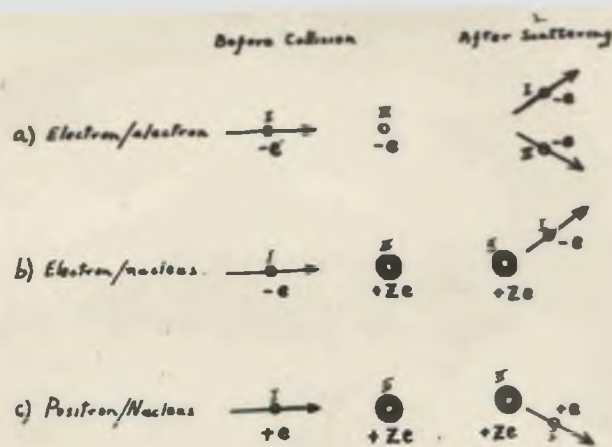 Before Collision After Scattering
I II I -e
a) Electron/electron -e -e II -e
I II II I
b) Electron/nucleus -e +Ze +Ze -e
I II II +e
c) Positron/Nucleus +e +Ze +Ze I